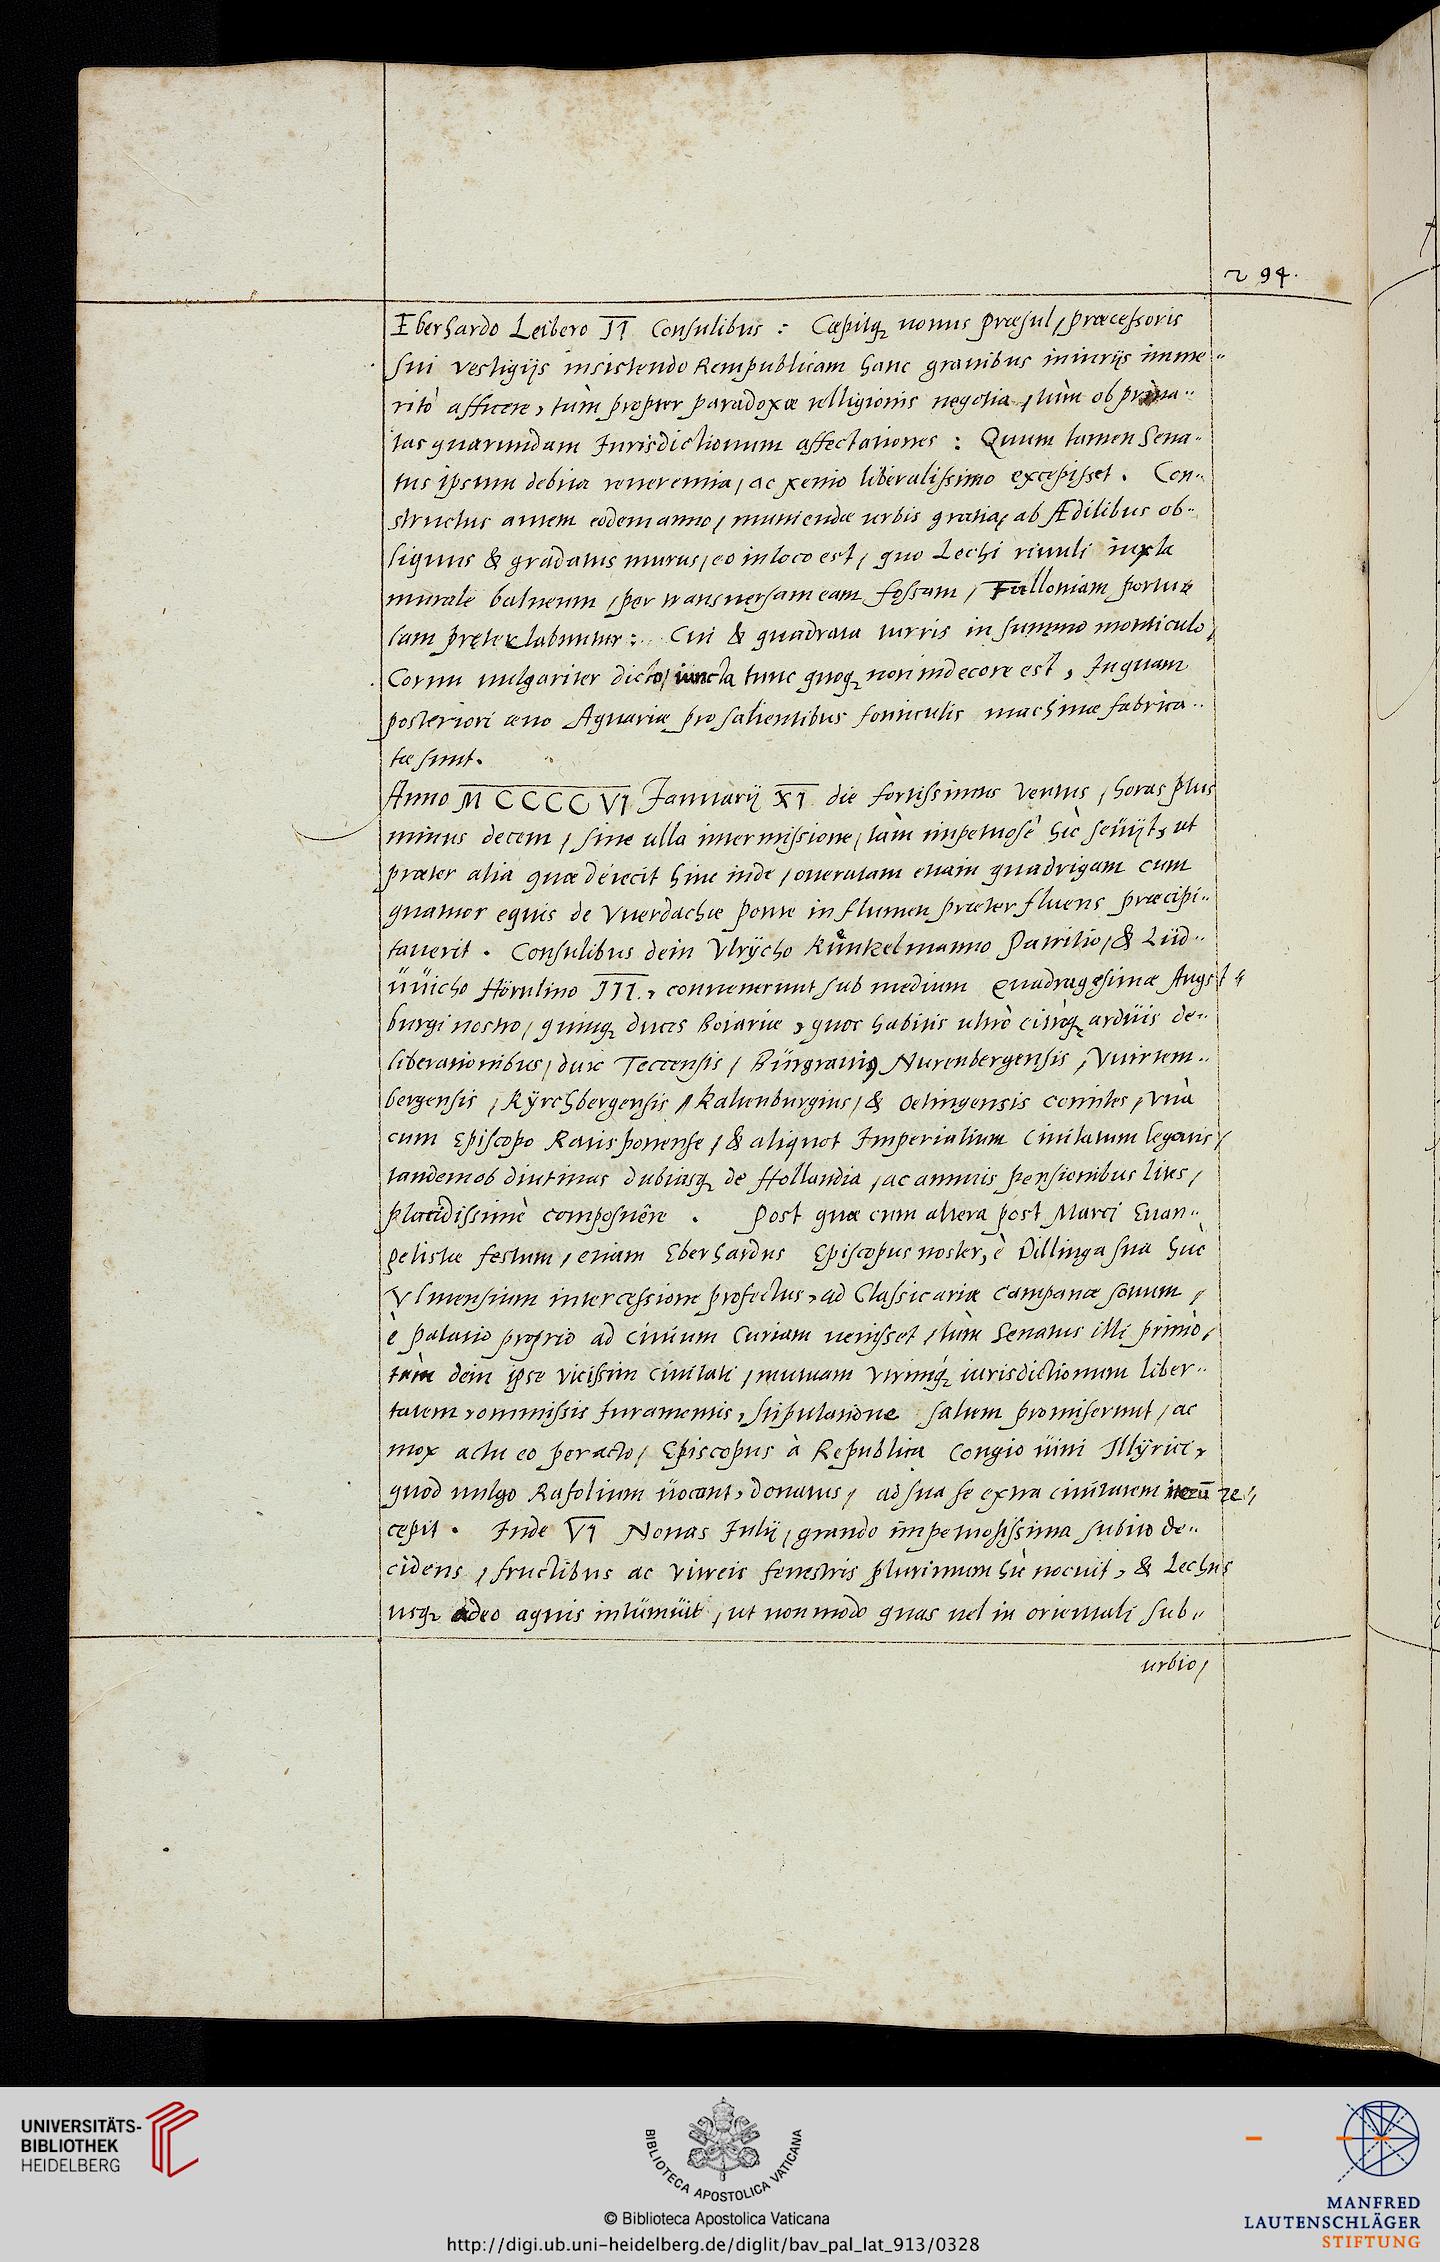 294.
Eberhardo Leibero II Consulibus : Cæpitq₃ nouus Præsul, præcessoris
sui vestigijs insistendo Rempublicam hanc grauibus iniurijs imme„
ritò afficere, tùm propter paradoxæ relligionis negotia, tùm ob priua„
tas quarundam Jurisdictionum affectationes : Quum tamen Sena„
tus ipsum debita reuerentia, ac xenio liberalissimo excepisset. Con„
structus autem eodem anno, muniendæ urbis gratia, ab Ædilibus ob„
liquus & gradatus murus, eo in loco est, quo Lechi riuuli iuxta
murale balneum, per transuersam eam fossam, Fulloniam portu
lam pręterlabuntur : Cui & quadrata turris in summo monticulo,
Cornu uulgariter dicto, iuncta tunc quoq₃ non indecore est, In quam
posteriori æuo Aquariæ pro salientibus fonticulis machinæ fabrica„
tæ sunt.
Anno MCCCCVI Januarij XI die fortissimus ventus, horas plus
minus decem, sine ulla intermissione, tàm impetuosè hic seüijt, ut
præter alia quæ deiecit hinc inde, oneratam etiam quadrigam cum
quatuor equis de Vuerdachæ ponte in flumen præterfluens præcipi„
tauerit. Consulibus dein Vlrÿcho Künkelmanno Patritio, & Lüd„
üüicho Hörnlino III., conuenerunt sub medium Quadragesimæ Augst„
burgi nostro, quinq₃ duces Boiariæ, quos habitis ultrò citròq₃ ardüis de„
liberationibus, dux Teccensis, Bürgrauiꝰ Nurenbergensis, Vuirtem„
bergensis, Kÿrchbergensis, Katzenburgius, & Oetingensis comites, vnà
cum Episcopo Ratisponense, & aliquot Imperialium Ciuitatum legatis,
tandem ob diutinas dubiasq₃ de Hollandia, ac annuis pensionibus lites,
placidissimè composuêre. Post quæ cum altera post Marci Euan„
gelistæ festum, etiam Eberhardus Episcopus noster, è Dillinga sua huc
Vlmensium intercessione profectus, ad Classicariæ Campanæ sonum,
è palatio proprio ad ciuium Curiam uenisset, tùm Senatus illi primò,
tùm dein ipse vicissim ciuitati, mutuam utrinq₃ iurisdictionum liber„
tatem, ommissis Juramentis, stipulatione saltem promiserunt, ac
mox actu eo peracto, Episcopus à Republica Congio üini Illÿrici,
quod uulgo Rafolium üocant, donatus, ad sua se extra ciuitatem iterū re„
cepit. Inde VI Nonas Julij, grando impetuosissima subito de„
cidens, fructibus ac vitreis fenestris plurimum hic nocuit, & Lechus
usq₃ adeo aquis intümüit, ut non modo quas uel in orientali sub„
urbio,
UNIVERSITÄTS-
BIBLIOTHEK
HEIDELBERG
BIBLIOTECA APOSTOLICA VATICANA
© Biblioteca Apostolica Vaticana
http://digi.ub.uni-heidelberg.de/diglit/bav_pal_lat_913/0328
MANFRED
LAUTENSCHLÄGER
STIFTUNG